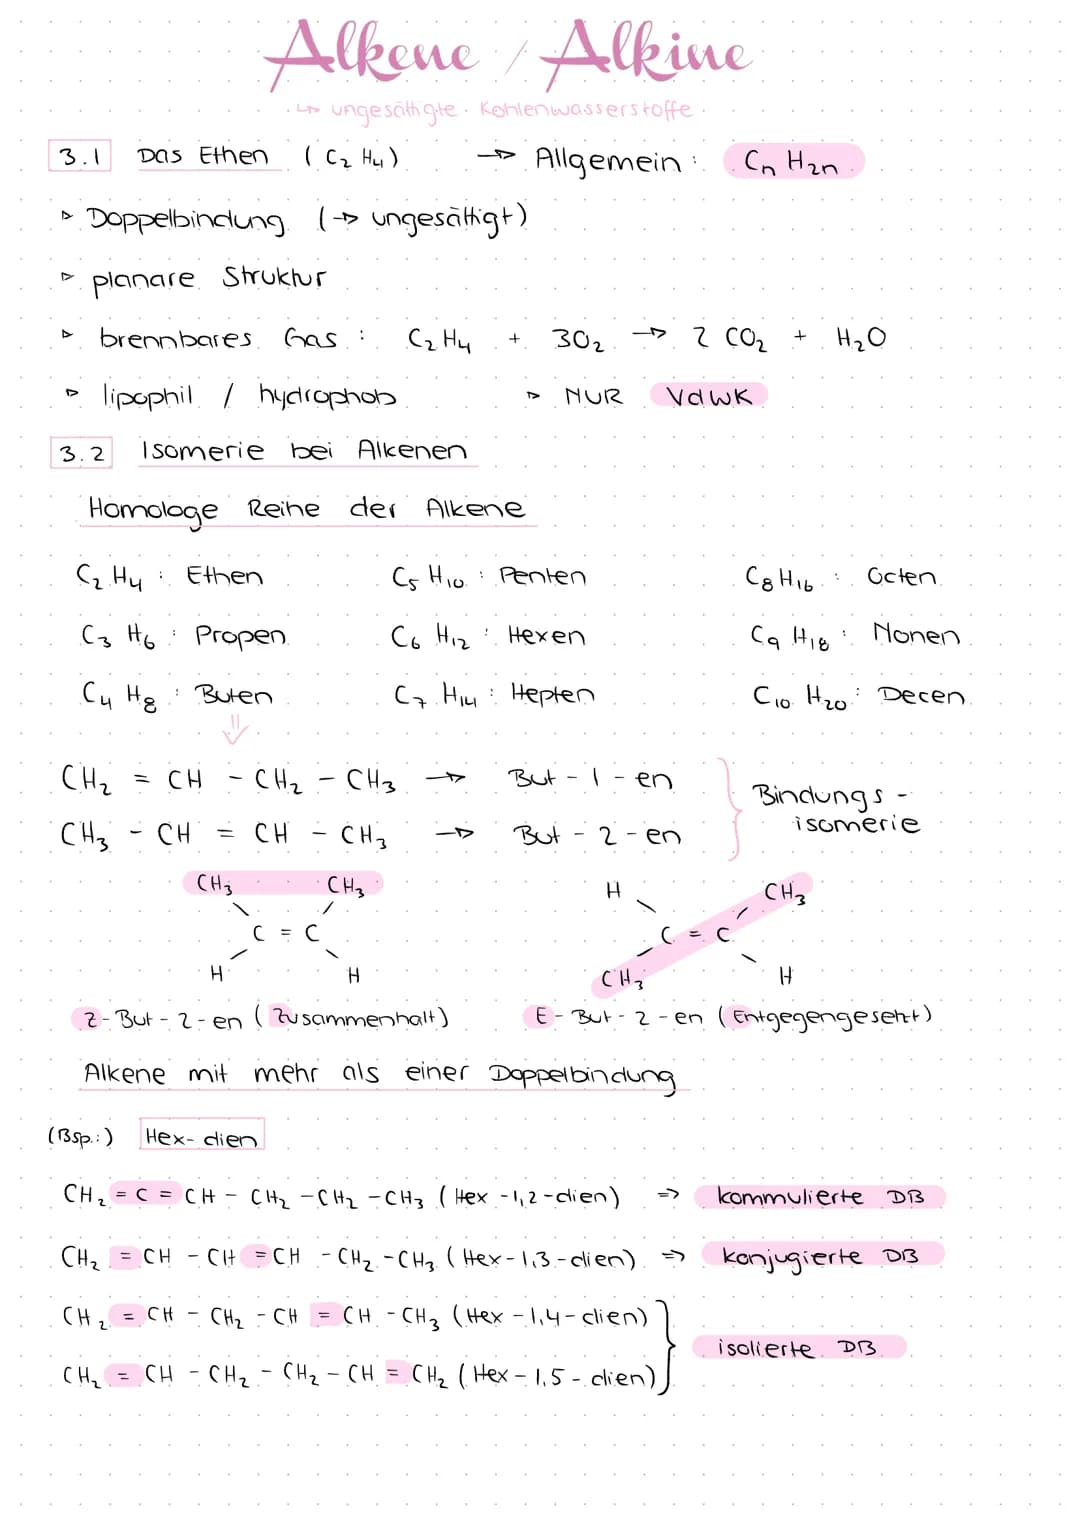 Alkene / Alkine
↳ ungesättigte Kohlenwasserstoffe
3.1 Das Ethen (C₂H₄) → Allgemein: CₙH₂ₙ
▹ Doppelbindung (→ ungesättigt)
▹ planare Struktur
▹ brennbares Gas: C₂H₄ + 3O₂ → 2 CO₂ + H₂O
▹ lipophil / hydrophob ▹ NUR VdWK
3.2 Isomerie bei Alkenen
Homologe Reihe der Alkene
C₂H₄: Ethen C₅H₁₀: Penten C₈H₁₆: Octen
C₃H₆: Propen C₆H₁₂: Hexen C₉H₁₈: Nonen
C₄H₈: Buten C₇H₁₄: Hepten C₁₀H₂₀: Decen
⇓
CH₂ = CH - CH₂ - CH₃ → But-1-en
CH₃ - CH = CH - CH₃ → But-2-en
Bindungs-
isomerie
CH₃ CH₃
C = C
H H
H CH₃
C = C
CH₃ H
Z-But-2-en (Zusammenhalt) E-But-2-en (Entgegengesetzt)
Alkene mit mehr als einer Doppelbindung
(Bsp.:) Hex-dien
CH₂ = C = CH - CH₂ - CH₂ - CH₃ (Hex-1,2-dien) ⇒ kommulierte DB
CH₂ = CH - CH = CH - CH₂ - CH₃ (Hex-1,3-dien) ⇒ konjugierte DB
CH₂ = CH - CH₂ - CH = CH - CH₃ (Hex-1,4-dien)
CH₂ = CH - CH₂ - CH₂ - CH = CH₂ (Hex-1,5-dien)
isolierte DB